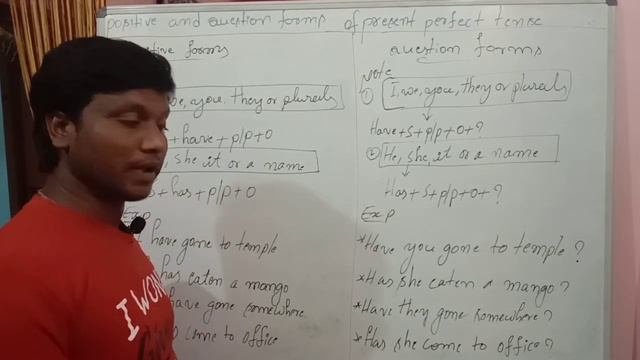 positive and question forms of present perfect tense
forms
we, you, they or plurals
s + have + p/p + o
she it or a name
+ has + p/p + o
Exp
have gone to temple
has eaten a mango
have gone somewhere
come to office
question forms
Note
① I, we, you, they or plurals
Have + s + p/p + o + ?
② He, she, it or a name
Has + s + p/p + o + ?
Exp
* Have you gone to temple ?
* Has she eaten a mango ?
* Have they gone somewhere ?
* Has she come to office ?
I WON